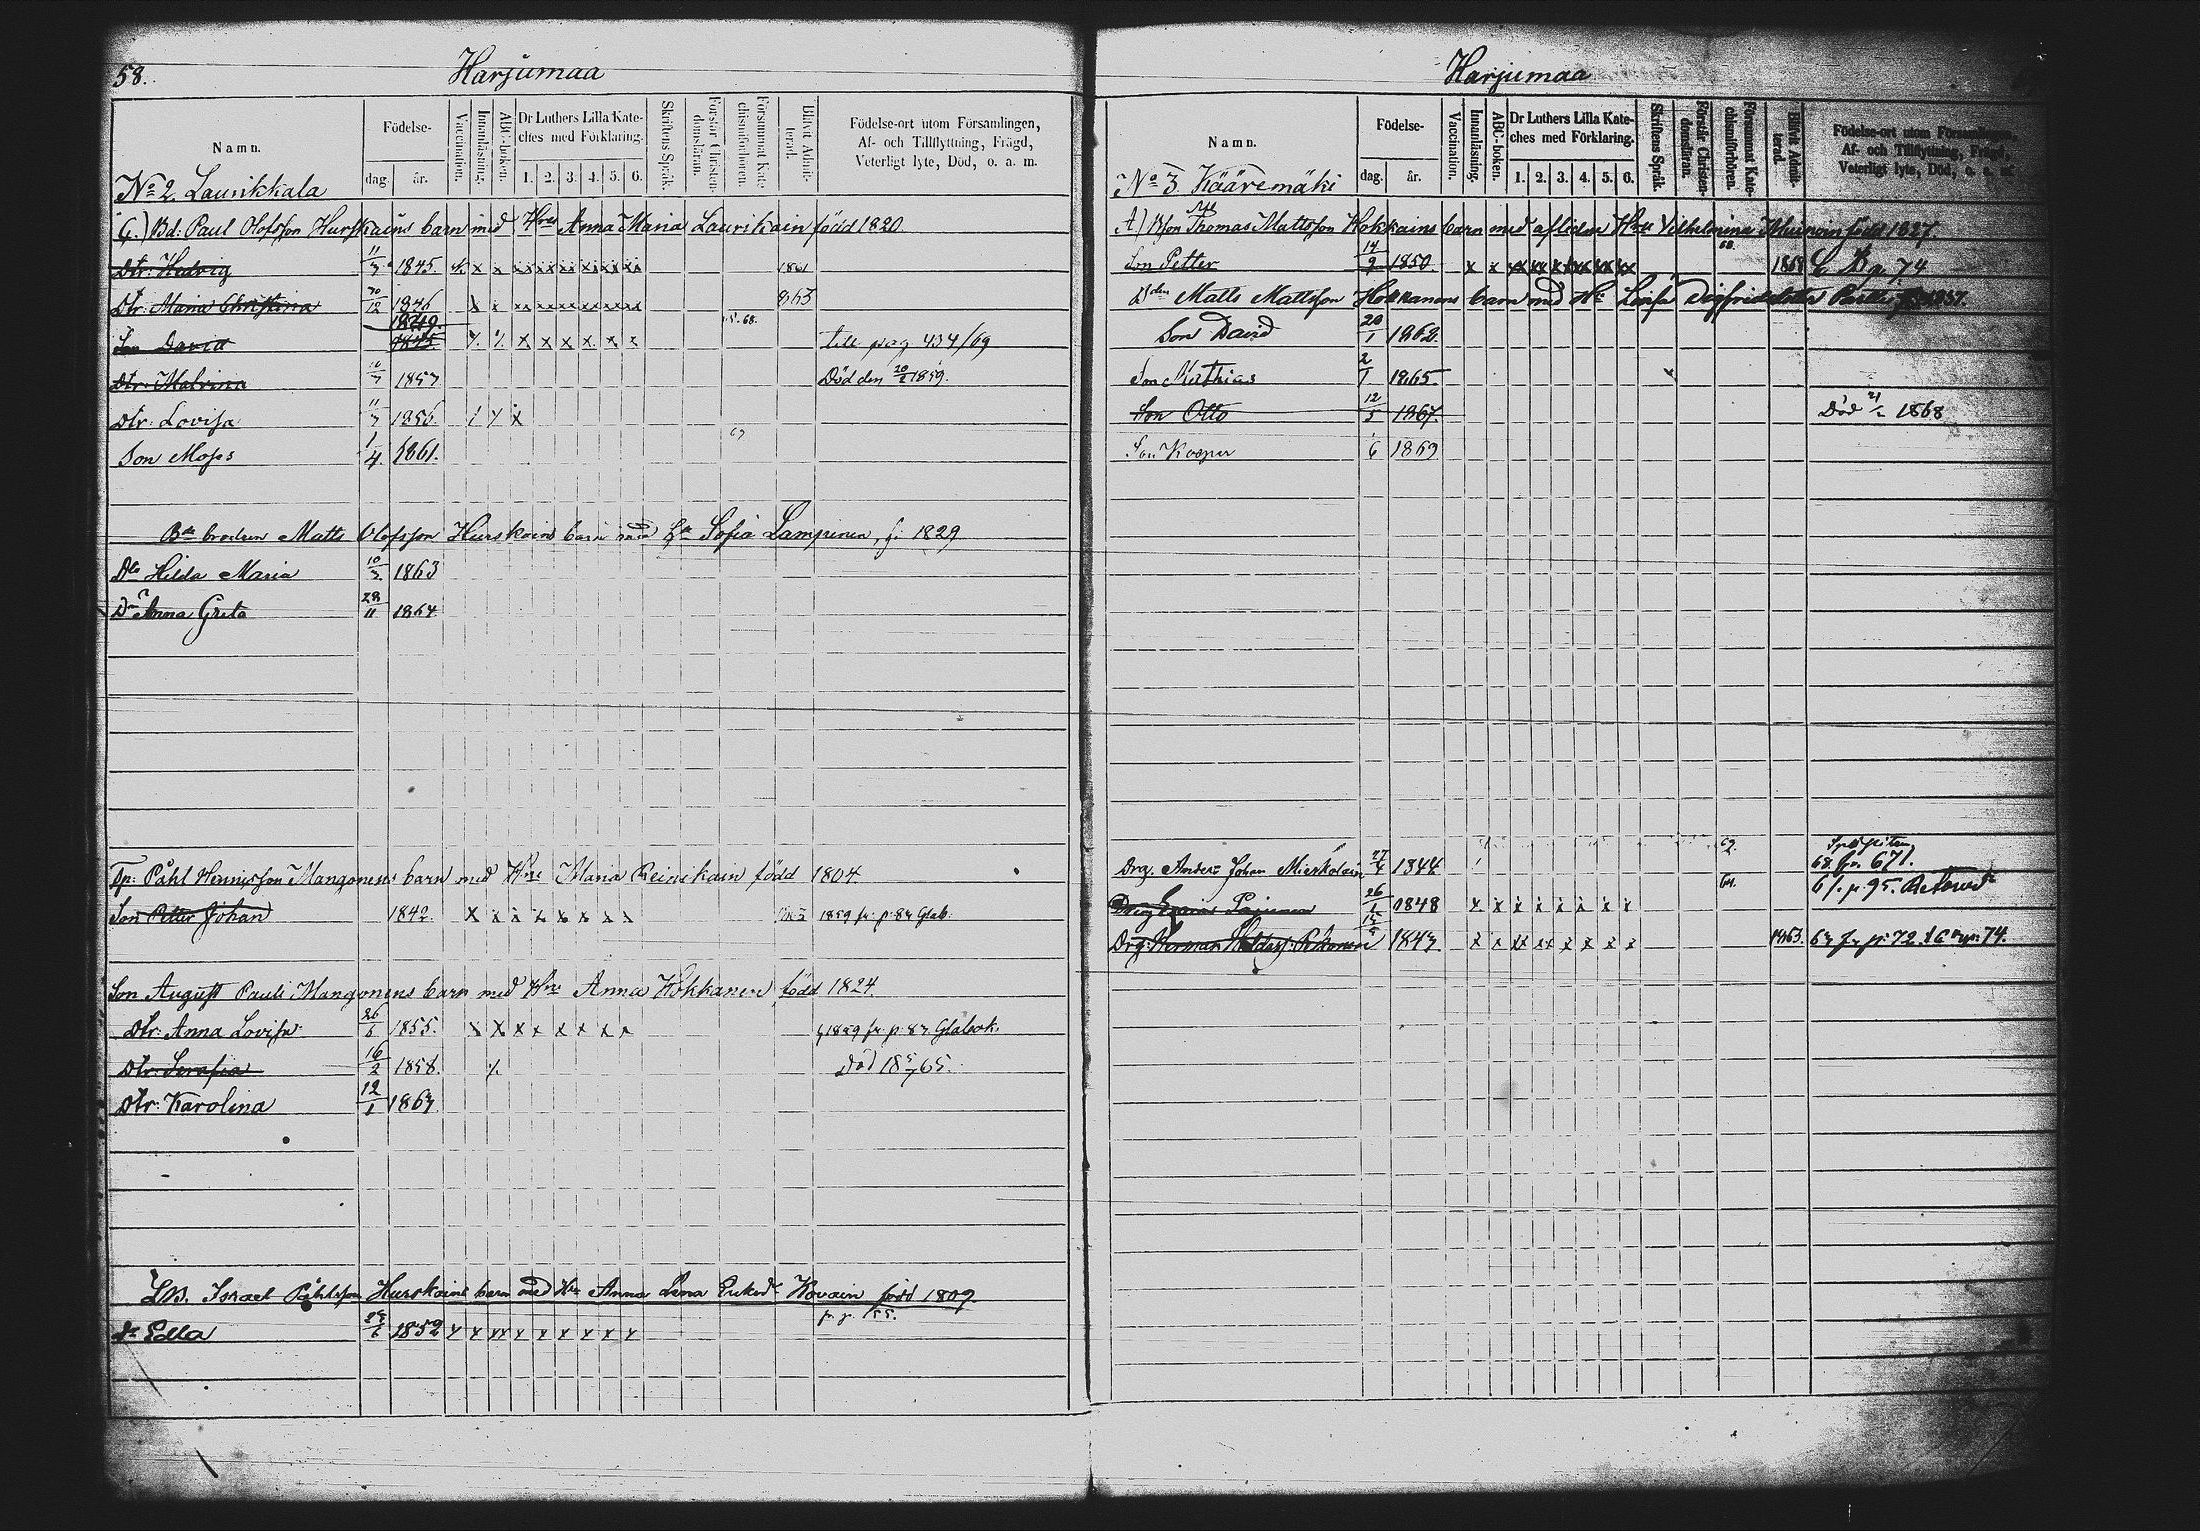 58. Harjumaa
Namn. Födelse- dag. år. Vaccination. Innanläsning. ABC-boken. Dr Luthers Lilla Kateches med Förklaring. 1. 2. 3. 4. 5. 6. Skriftens Språk. Förstår Christendomsläran. Försummat Katechismiförhören. Blifvit Admitterad. Födelse-ort utom Församlingen, Af- och Tillflyttning, Frägd, Veterligt lyte, Död, o. a. m.
No 2. Laurikkala
C.) Bd: Paul Olofsson Hurskains barn med Hru Anna Maria Laurikain född 1820
Dtr: Hedvig 11/3 1845. x x x xx xx xx xx xx xx 1861
Dtr Maria Christina 30/12 1846 x x xx xx xx xx xx xx 1863
Son David 1849. 1845 x x x x x x x x 68. till pag 434/69
Dtr: Malvina 10/7 1857 Död den 20/2 1859.
Dtr: Lovisa 11/3 1856
Son Moses 1/4 1861.
Bdr brodren Matts Olofsson Hurskains barn med Sofia Lampinen, f. 1829
Dtr Hilda Maria 10/3 1863
Dr Anna Greta 28/11 1864
Tp: Påhl Hennissson Mangonens barn med Hru Maria Reinikain född 1804.
Son Petter Johan 1842. x x x x x x x x 1859 fr. p. 87 Glab.
Son August Pauli Mangonens barn med Hru Anna Hokkanen född 1824.
Dtr: Anna Lovisa 26/5 1855. x x x x x x x x 1859 fr. p. 87 Glabok.
Dtr: Serafia 16/2 1858. Död 18 5/7 65.
Dtr: Karolina 12/1 1867
Israel Påhlsson Hurskains barn med Hru Anna Lena Eriksdr Kovain född 1809.
fr. p. 55.
Dr Edla 1852 x x xx x x x x x x
Harjumaa
Namn. Födelse- dag. år. Vaccination. Innanläsning. ABC-boken. Dr Luthers Lilla Kateches med Förklaring. 1. 2. 3. 4. 5. 6. Skriftens Språk. Förstår Christendomsläran. Försummat Katechismiförhören. Blifvit Admitterad. Födelse-ort utom Församlingen, Af- och Tillflyttning, Frägd, Veterligt lyte, Död, o. a. m.
No 3 Kääremäki
A) Thomas Mattsson Hokkains barn med aflidne Hru Vilhelmina Muinoin född 1827.
Son Petter 14/9 1850. x x xx xx xx xx xx xx 68. p. 74
Matts Mattsson Hokkanens barn med Hu Lovisa Sigfridsdotter 1837.
Son David 20/1 1862.
Son Mathias 2/1 1865.
Son Otto 12/5 1867. Död 21/2 1868
Son Kasper 1/6 1869
Drg. Anders Johan 27/4 1844 68 fr. 671.
Dräng Esaias Pajunen 26/1 1848 x x x x x x x x 64. 61. p. 95.
Drg: Herman 15/5 1847 x x xx xx x x x x 1863. 67 fr p: 72. p. 74.